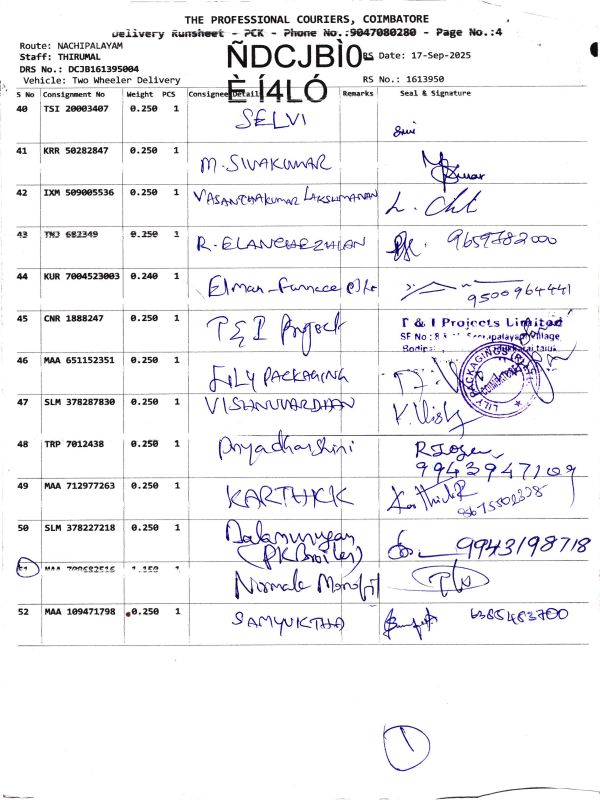 THE PROFESSIONAL COURIERS, COIMBATORE
Delivery Runsheet - PCK - Phone No.:9047080280 - Page No.:4
Route: NACHIPALAYAM
Staff: THIRUMAL
DRS No.: DCJB161395004
Vehicle: Two Wheeler Delivery
ÑDCJBÌ0
È Í4LÓ
RS Date: 17-Sep-2025
RS No.: 1613950
S No Consignment No Weight PCS Consignee Details Remarks Seal & Signature
40 TSI 20003407 0.250 1 SELVI
41 KRR 50282847 0.250 1 M. SIVAKUMAR
42 IXM 509005536 0.250 1 VASANTHAKUMAR LAKSHMANAN
43 TNJ 682349 0.250 1 R. ELANCHEZHIAN 9659782000
44 KUR 7004523003 0.240 1 Elman-Furnace 9500964441
45 CNR 1888247 0.250 1 T & I Project
T & I Projects Limited
46 MAA 651152351 0.250 1 LILY PACKAGING
47 SLM 378287830 0.250 1 VISHNUVARDHAN
48 TRP 7012438 0.250 1 Priyadharshini
49 MAA 712977263 0.250 1 KARTHICK
50 SLM 378227218 0.250 1 Balamurugan 9943198718
(PK Broiler)
51 MAA 1.150 1 Nirmala
52 MAA 109471798 0.250 1 SAMYUKTHA 6385483700
1